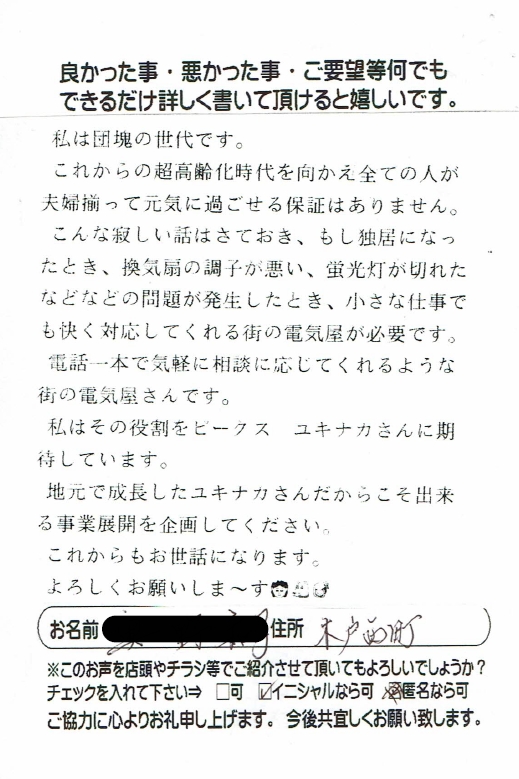 良かった事・悪かった事・ご要望等何でも
できるだけ詳しく書いて頂けると嬉しいです。
私は団塊の世代です。
これからの超高齢化時代を向かえ全ての人が
夫婦揃って元気に過ごせる保証はありません。
こんな寂しい話はさておき、もし独居になっ
たとき、換気扇の調子が悪い、蛍光灯が切れた
などなどの問題が発生したとき、小さな仕事で
も快く対応してくれる街の電気屋が必要です。
電話一本で気軽に相談に応じてくれるような
街の電気屋さんです。
私はその役割をピークス　ユキナカさんに期
待しています。
地元で成長したユキナカさんだからこそ出来
る事業展開を企画してください。
これからもお世話になります。
よろしくお願いしま～す
お名前 住所 木戸西町
※このお声を店頭やチラシ等でご紹介させて頂いてもよろしいでしょうか？
チェックを入れて下さい⇒ □可 ☑イニシャルなら可 匿名なら可
ご協力に心よりお礼申し上げます。今後共宜しくお願い致します。